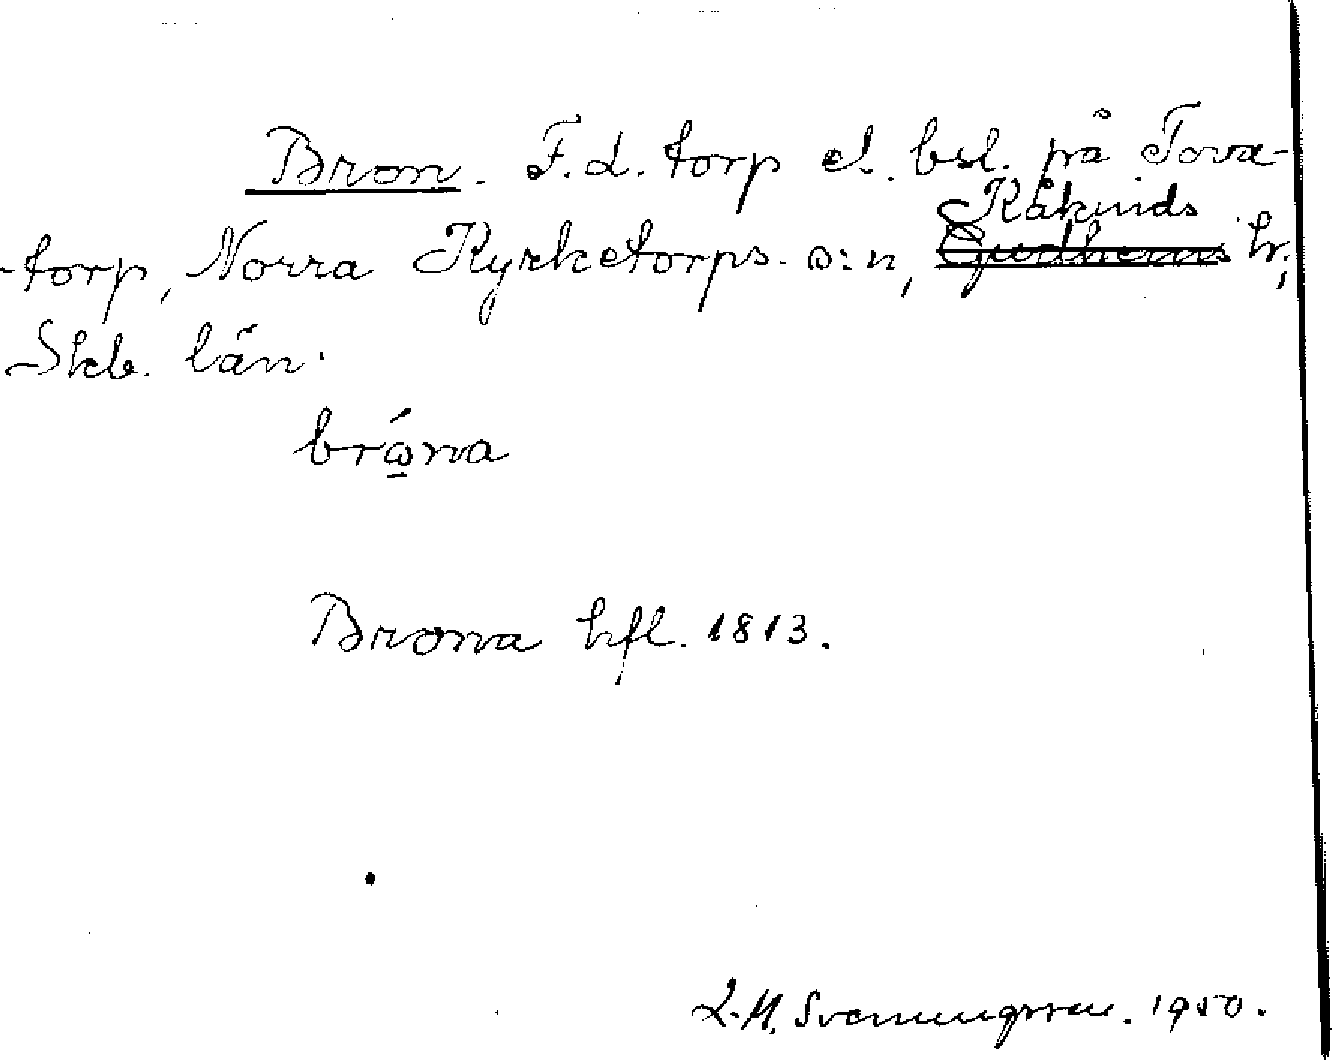 Bron. F.d. torp el. bsl. på Tova-
Kåkinds
torp, Norra Kyrketorps s:n, Gudhems hr,
Skb. län.
brǿ̱na
Brona hfl. 1813.
L.M. Svenungsson. 1950.